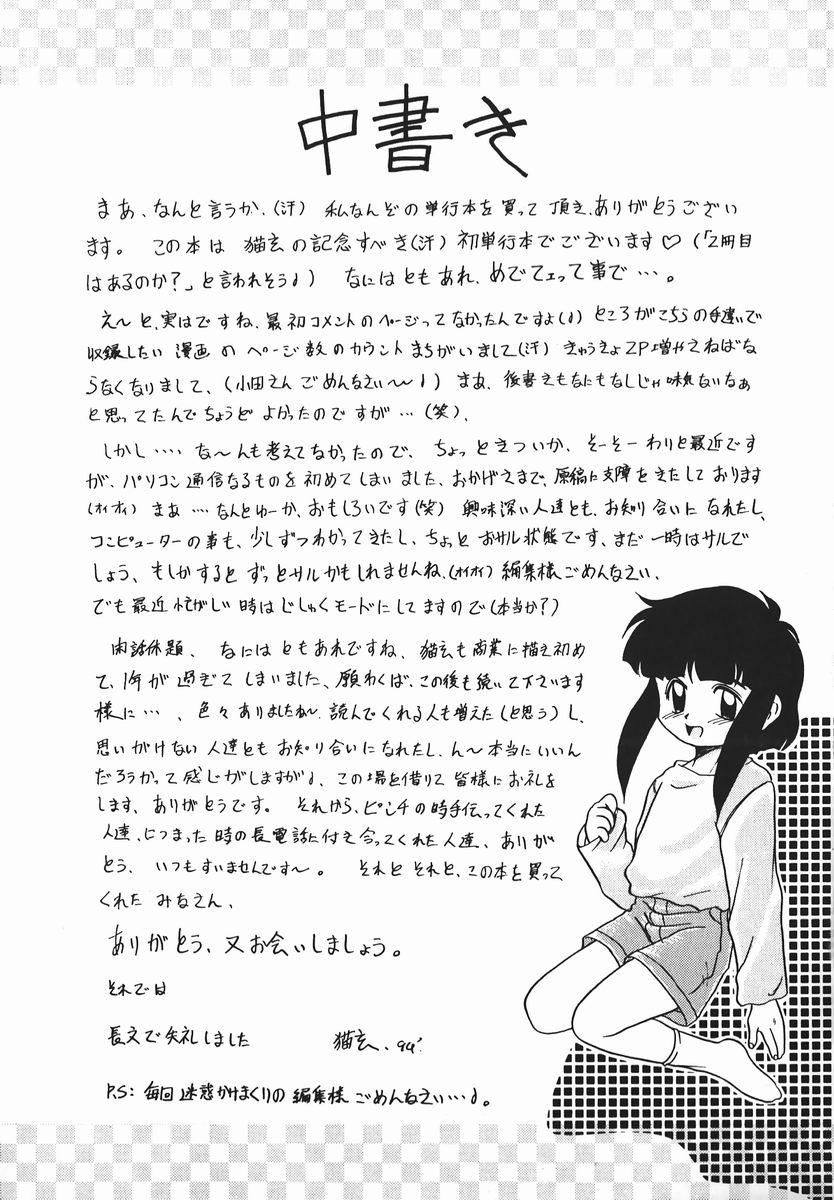 中書き
まあ、なんと言うか、(汗) 私なんぞの単行本を買って頂き、ありがとうござい
ます。 この本は 猫玄の記念すべき(汗)初単行本でございます♡(「2冊目
はあるのか?」と言われそう♪) なにはともあれ、めでてェって事で…。
え〜と、実はですね、最初コメントのページってなかったんですよ(♪) ところがこちらの手違いで
収録したい 漫画 の ページ数のカウント まちがいまして(汗) きゅうきょ2P増やさねばな
らなくなりまして、(小田さん ごめんなさい〜♪) まあ、後書きもなにもなしじゃ味気ないなぁ
と思ってたんでちょうど よかったのですが…(笑)、
しかし‥‥ な〜んも考えてなかったので、ちょっときついか、そーそーわりと最近です
が、パソコン通信なるものを初めてしまいました、おかげさまで、原稿に支障をきたしております
(オイオイ) まあ …なんとゆーか、おもしろいです(笑) 興味深い人達とも、お知り合いになれたし、
コンピューターの事も、少しずつわかってきたし、ちょっとおサル状態です、まだ一時はサルで
しょう、もしかするとずっとサルかもしれませんね、(オイオイ)編集様ごめんなさい、
でも最近 忙がしい時はじしゅくモードにしてますので(本当か?)
閑話休題、 なにはともあれですね、猫玄も商業に描き初め
て、1年が過ぎてしまいました、願わくば、この後も続いて下さいます
様に…、色々ありましたね〜 読んでくれる人も増えた(と思う)し、
思いがけない人達ともお知り合いになれたし、ん〜本当にいいん
だろうかって感じがしますが♪、この場を借りて皆様にお礼を
します、ありがとうです。 それから、ピンチの時手伝ってくれた
人達、につまった時の長電話に付き合ってくれた人達、ありが
とう、いつもすいませんです〜。 それとそれと、この本を買って
くれた みなさん、
ありがとう、又お会いしましょう。
それでは
長文で失礼しました 猫玄、94'
P.S: 毎回 迷惑かけまくりの 編集様 ごめんなさい…♪。